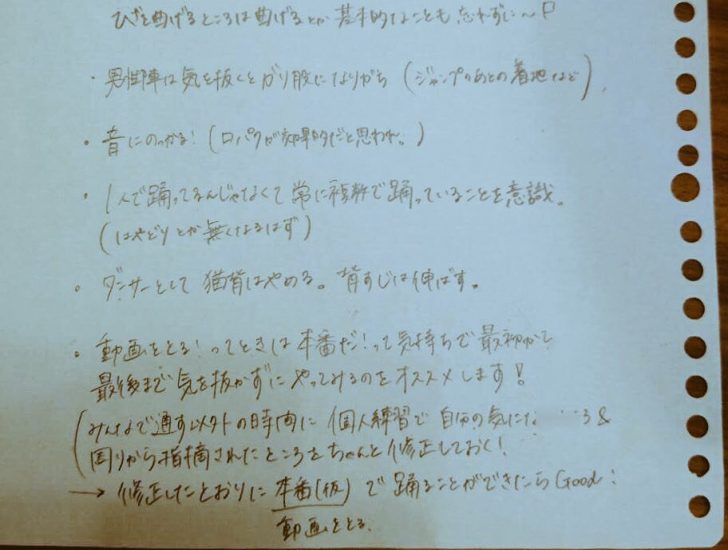 ひざを曲げるところは曲げるとか基本的なことも忘れずに〜!
・男性陣は気を抜くとガリ股になりがち (ジャンプのあとの着地など)。
・音にのっかる! (口パクが効果的だと思われ。)
・1人で踊ってるんじゃなくて常に複数で踊っていることを意識。
(はやどりとか無くなるはず)
・ダンサーとして猫背はやめる。背すじは伸ばす。
・動画をとる!ってときは本番だ!って気持ちで最初から
最後まで気を抜かずにやってみるのをオススメします!
(みんなで通す以外の時間に個人練習で自分の気にな ろ&
周りから指摘されたところをちゃんと修正しておく!
→ 修正したとおりに本番(仮)で踊ることができたらGood!
動画をとる。